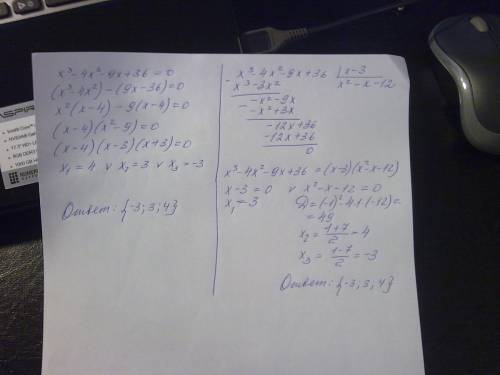 x³-4x²-9x+36=0
(x³-4x²)-(9x-36)=0
x²(x-4)-9(x-4)=0
(x-4)(x²-9)=0
(x-4)(x-3)(x+3)=0
x₁=4 ∨ x₂=3 ∨ x₃=-3
Ответ: {-3; 3; 4}
x³-4x²-9x+36 | x-3
x³-3x² | x²-x-12
-x²-9x
-x²+3x
-12x+36
-12x+36
0
x³-4x²-9x+36=(x-3)(x²-x-12)
x-3=0 ∨ x²-x-12=0
x₁=3 D=(-1)²-4·1·(-12)=
=49
x₂=(1+7)/2=4
x₃=(1-7)/2=-3
Ответ: {-3; 3; 4}